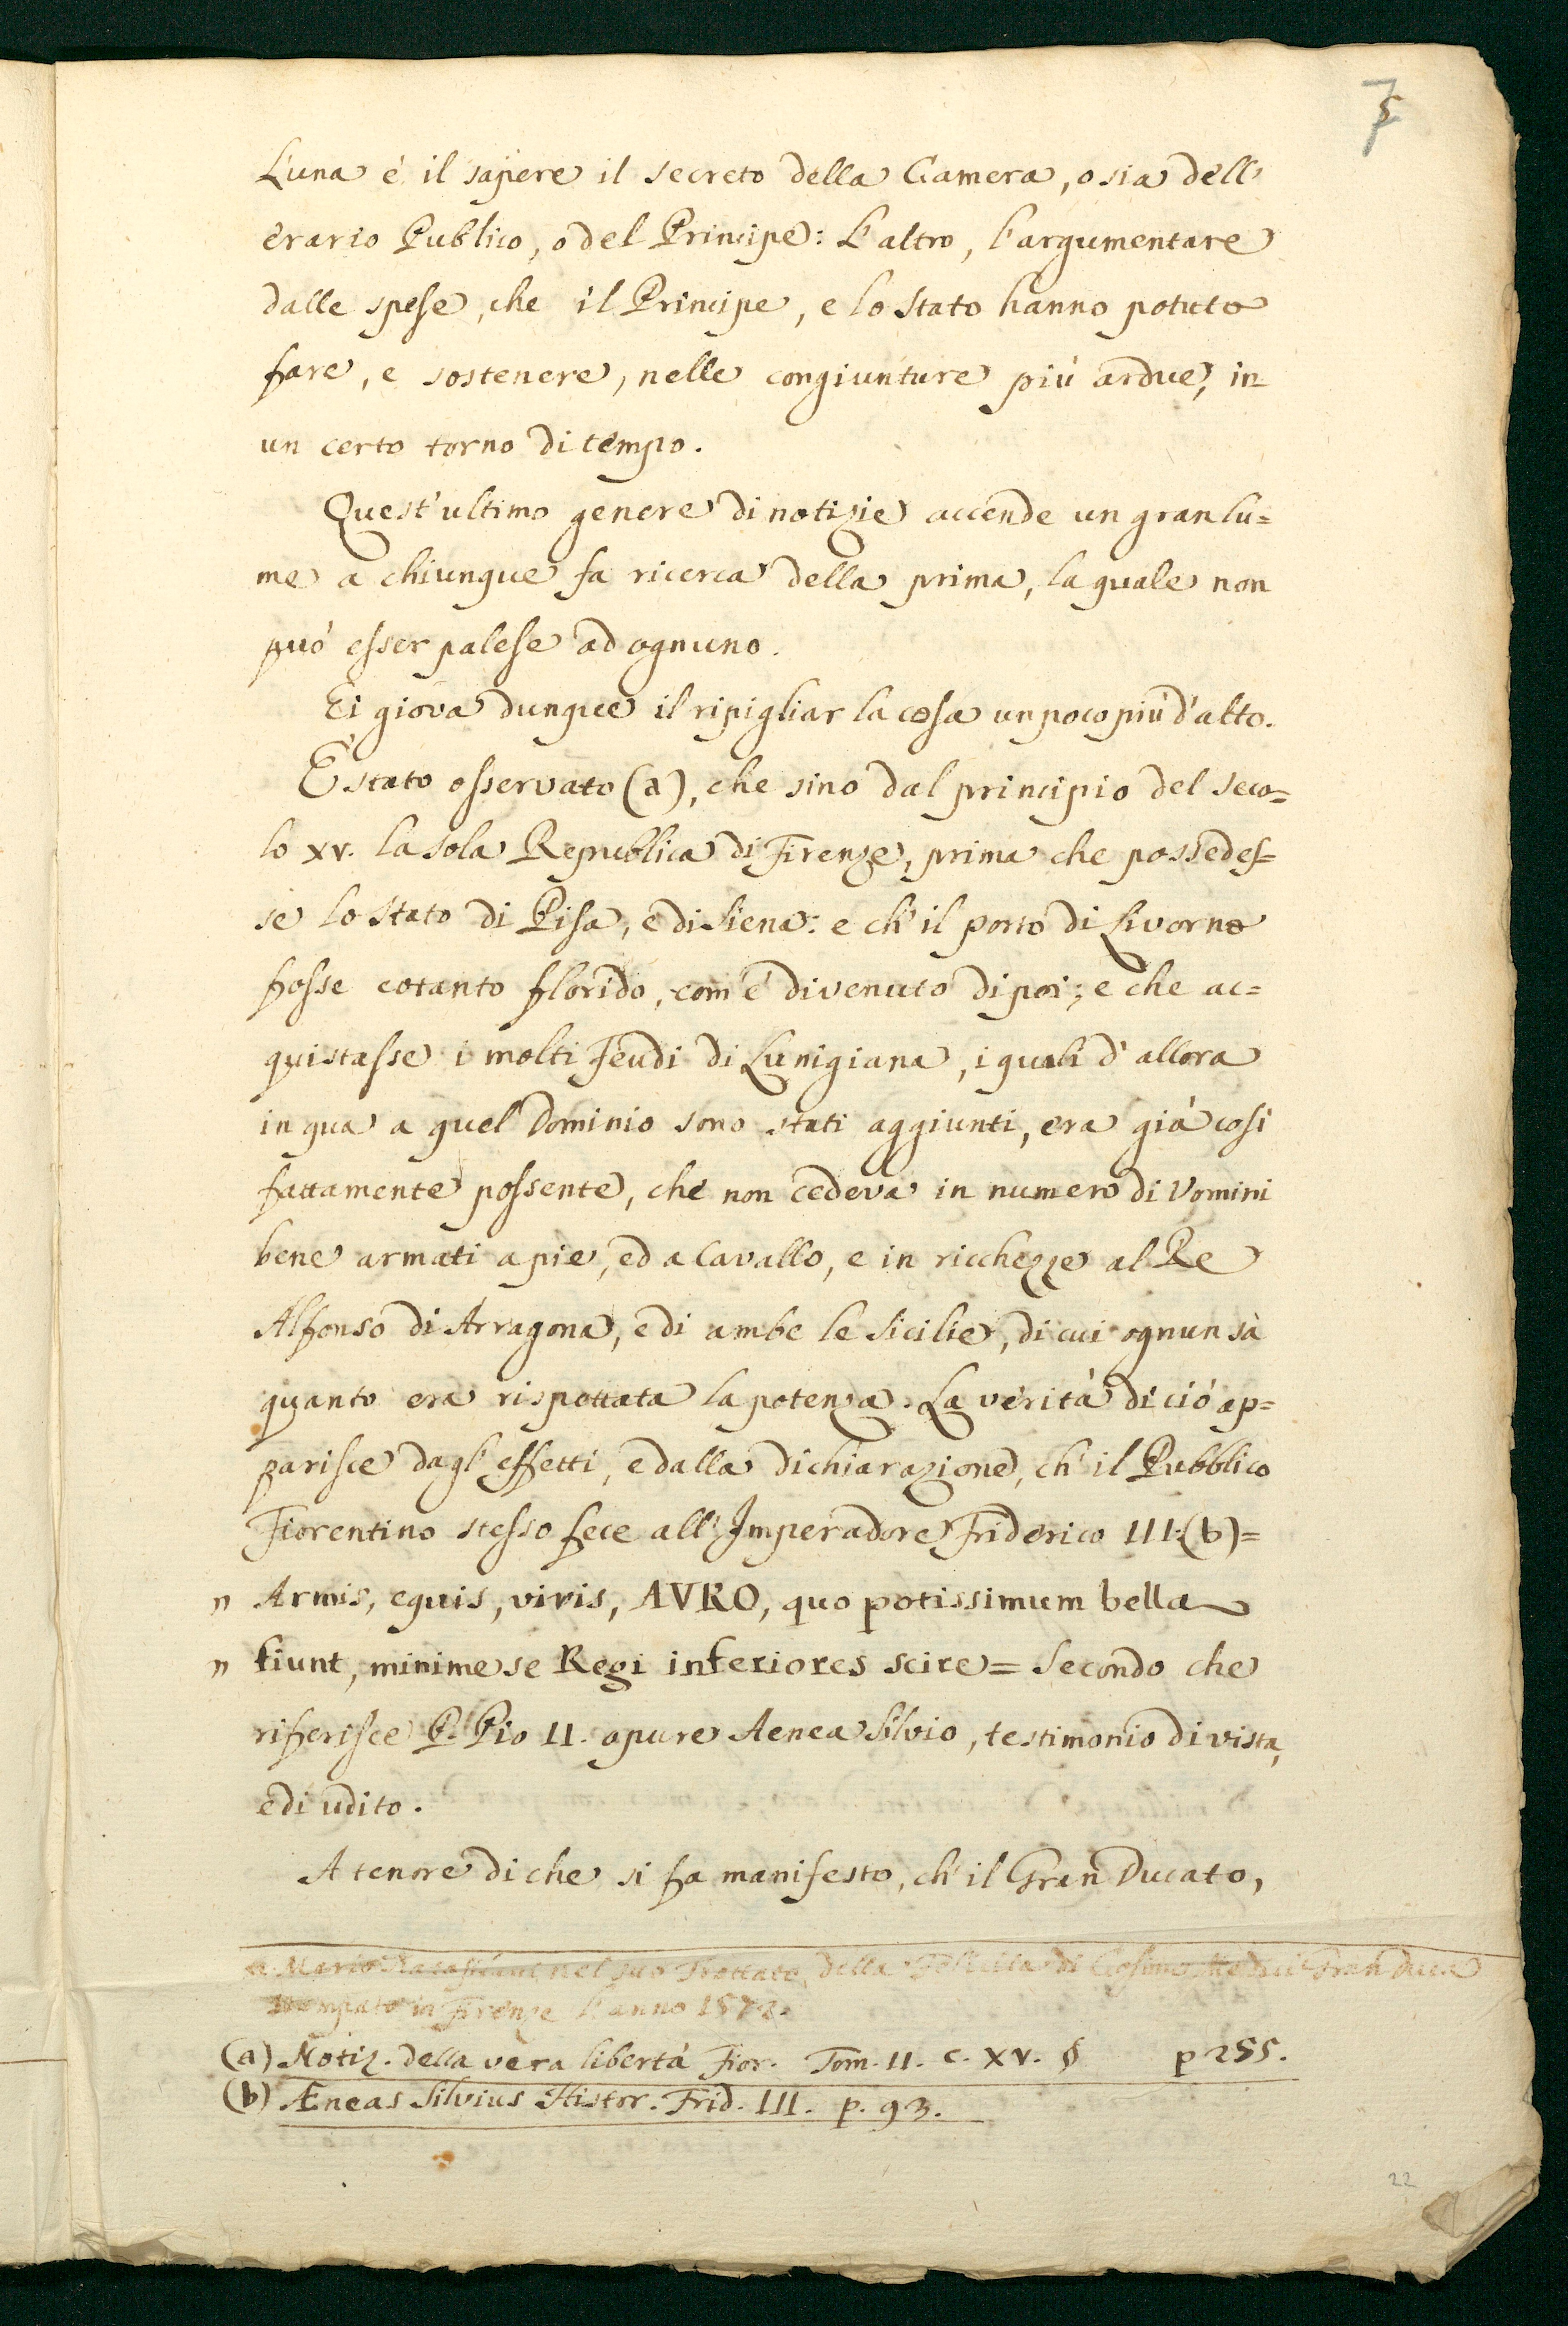 7
5
L'una è il sapere il secreto della Camera, o sia dell'
erario Publico, o del Principe: L'altro, l'argumentare
dalle spese, che il Principe, e lo Stato hanno potuto
fare, e sostenere, nelle congiunture più ardue, in
un certo torno di tempo.
Quest'ultimo genere di notizie accende un gran lu=
me a chiunque fa ricerca della prima, la quale non
può esser palese ad ognuno.
Ei giova dunque il ripigliar la cosa un poco più d'alto.
È stato osservato (a), che sino dal principio del seco=
lo XV. la sola Republica di Firenze, prima che possedes=
se lo Stato di Pisa, e di Siena: e ch'il porto di Livorno
fosse cotanto florido, com'è divenuto dipoi; e che ac=
quistasse i molti Feudi di Lunigiana, i quali d'allora
in qua a quel Dominio sono stati aggiunti, era già così
fattamente possente, che non cedeva in numero di Uomini
bene armati a pie, ed a Cavallo, e in ricchezze al Re
Alfonso di Arragona, e di ambe le Sicilie, di cui ognun sà
quanto era rispettata la potenza. La verità di ciò ap=
parisce dagl'effetti, e dalla dichiarazione, ch'il Pubblico
Fiorentino stesso fece all'Imperadore Friderico III.(b)=
" Armis, equis, viris, AVRO, quo potissimum bella
" fiunt, minime se Regi inferiores scire= Secondo che
riferisce P. Pio II. opure Aenea Silvio, testimonio di vista,
e di udito.
A tenore di che si fa manifesto, ch'il Gran Ducato,
a Mario nel suo Trattato della Felicità di Cosimo Medici Gran Duca
stampato in Firenze l'anno 1572.
(a) Notiz. della vera libertà Fior. Tom. II. c. XV. § p 255.
(b) Æneas Silvius Histor. Frid. III. p. 93.
22